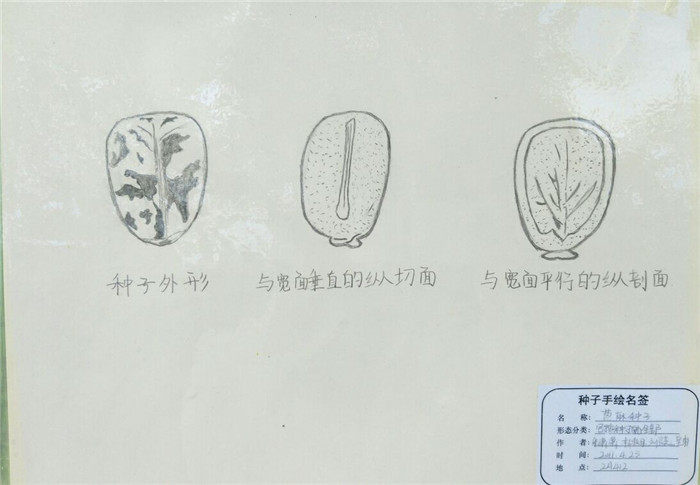 种子外形
与宽面垂直的纵切面
与宽面平行的纵剖面
种子手绘名签
名 称: 蓖麻种子
形态分类:
作 者:
时 间: 2011.4.27
地 点: 2A012